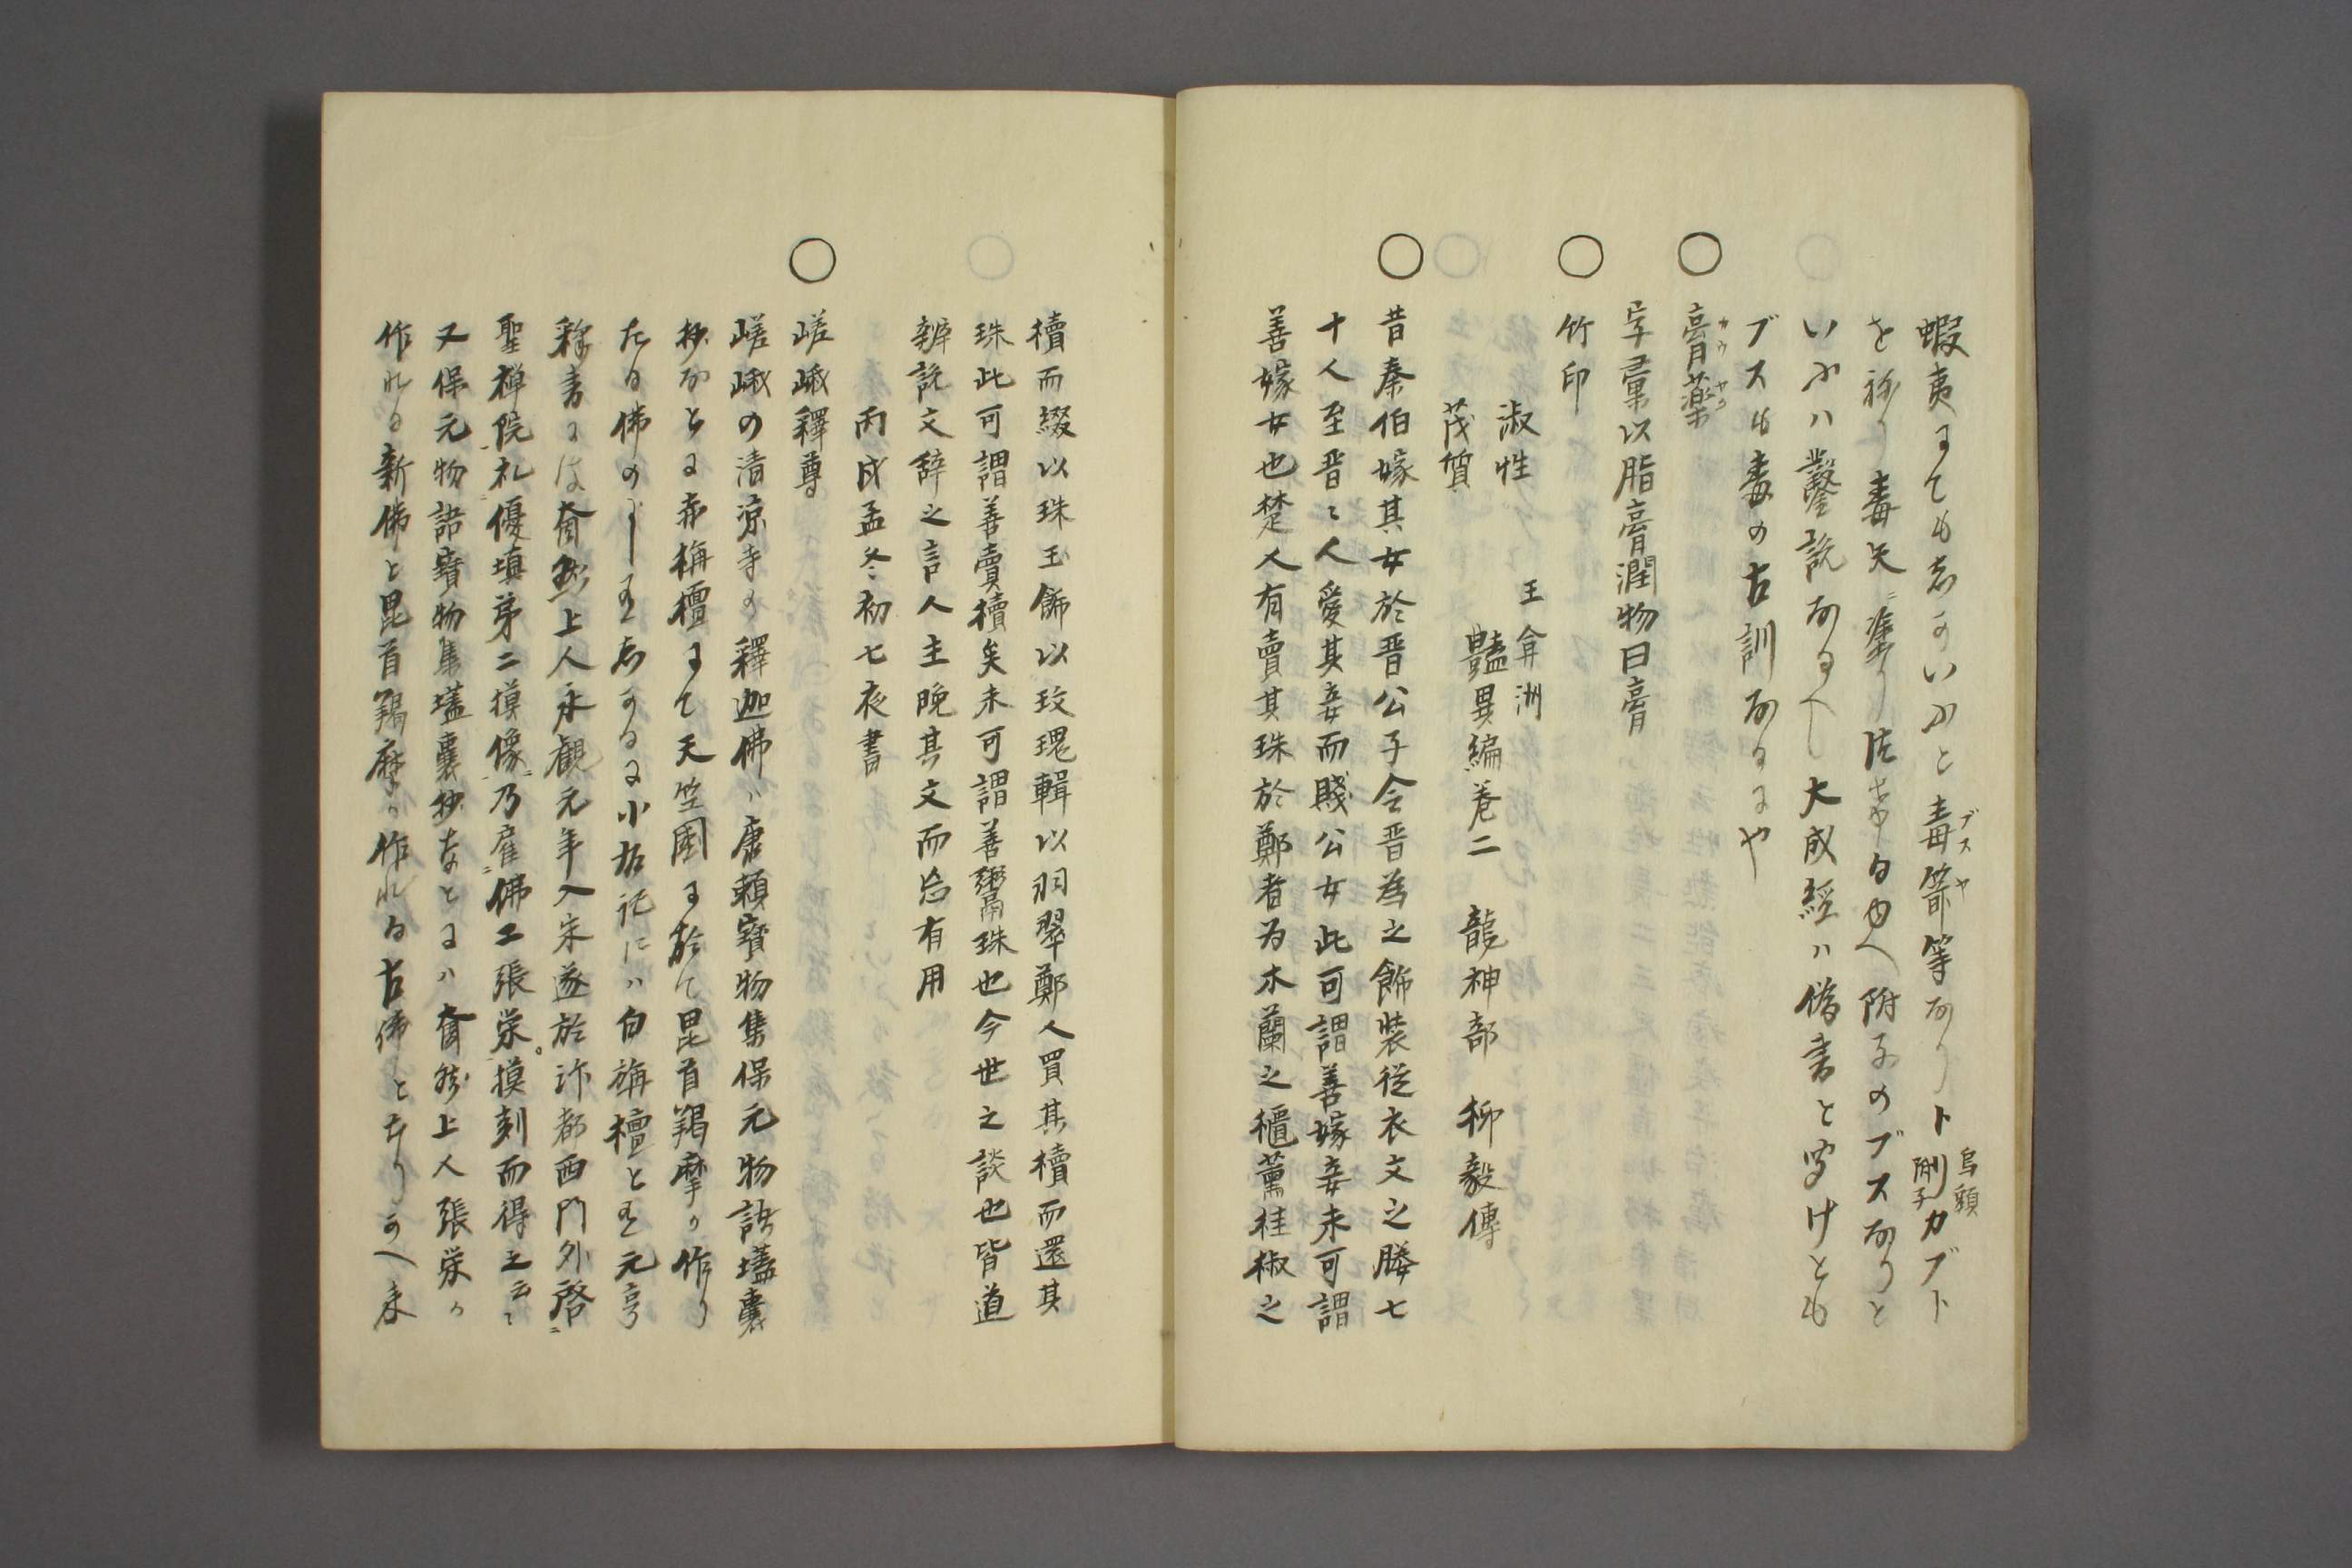 蝦夷にても志かいふと毒箭等ありト烏頭附子カブト
ブスヤ
を称り毒矢ニ塗り法 附子のブスありと
いふハ鑿説あるへし大成経ハ偽書と聞けとも
ブスも毒の古訓あるにや
膏薬
カウヤク
字彙以脂膏潤物曰膏
竹印
淑性
茂質
王弇洲
豔異編巻二 龍神部 柳毅傳
昔秦伯嫁其女於晋公子令晋為之飾装従衣文之媵七
十人至晋〻人愛其妾而賤公女此可謂善嫁妾未可謂
善嫁女也楚人有賣其珠於鄭者为木蘭之櫃薫桂椒之
櫝而綴以珠玉飾以玫瑰輯以羽翠鄭人買其櫝而還其
珠此可謂善賣櫝矣未可謂善鬻珠也今世之談也皆道
辨説文辞之言人主晩其文而忘有用
丙戌孟冬初七夜書
嵯峨釋尊
嵯峨の清凉寺の釋迦佛ハ康頼寳物集保元物語壒嚢
抄なとに赤栴檀にて天竺國に於て毘首羯摩か作り
たる佛のよし 志かるに小右記にハ白旃檀とし元亨
釋書には奝然上人永觀元年入宋遂於汴都西門外啓
聖禅院礼優塡第二摸像乃雇佛工張栄摸刻而得之云〻
又保元物語寳物集壒嚢抄なとにハ奝然上人張栄か
作れる新佛と毘首羯摩か作れる古佛と 来